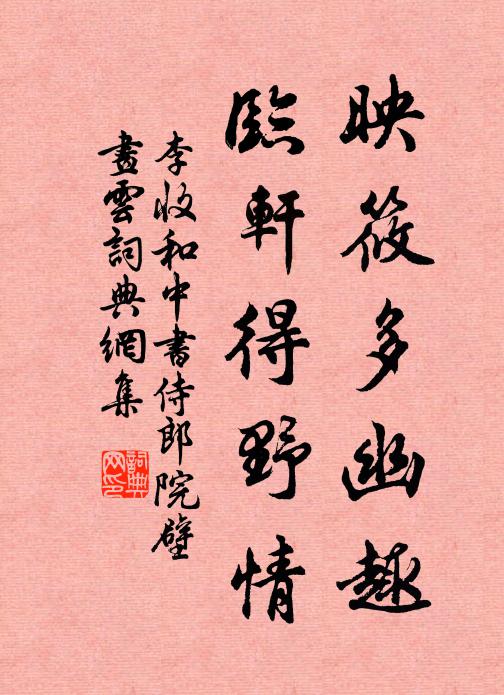 映筱多幽趣
臨軒得野情
李收和中書侍郎院壁
畫雲詞典網集
詞典
网印